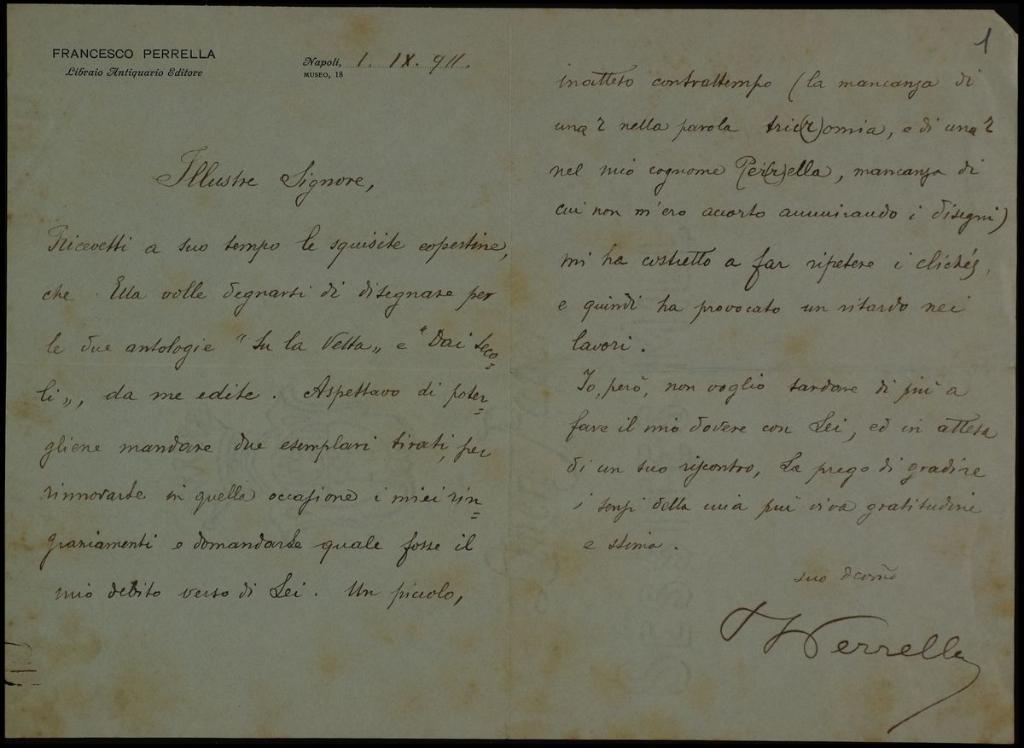 FRANCESCO PERRELLA
Libraio Antiquario Editore
Napoli, 1. IX. 911.
MUSEO, 18
Illustre Signore,
Ricevetti a suo tempo le squisite copertine,
che Ella volle degnarsi di disegnare per
le due antologie "Su la Vetta„ e "Dai Seco=
li„, da me edite. Aspettavo di poter=
gliene mandare due esemplari tirati, per
rinnovarle in quella occasione i miei rin=
graziamenti e domandarLe quale fosse il
mio debito verso di Lei. Un piccolo,
1
inatteso contrattempo (la mancanza di
una r nella parola tric(r)omia, e di una r
nel mio cognome Per(r)ella, mancanza di
cui non m'ero accorto ammirando i disegni)
mi ha costretto a far ripetere i clichés,
e quindi ha provocato un ritardo nei
lavori.
Io, però, non voglio tardare di più a
fare il mio dovere con Lei, ed in attesa
di un suo riscontro, La prego di gradire
i sensi della mia più viva gratitudine
e stima.
suo
Perrella